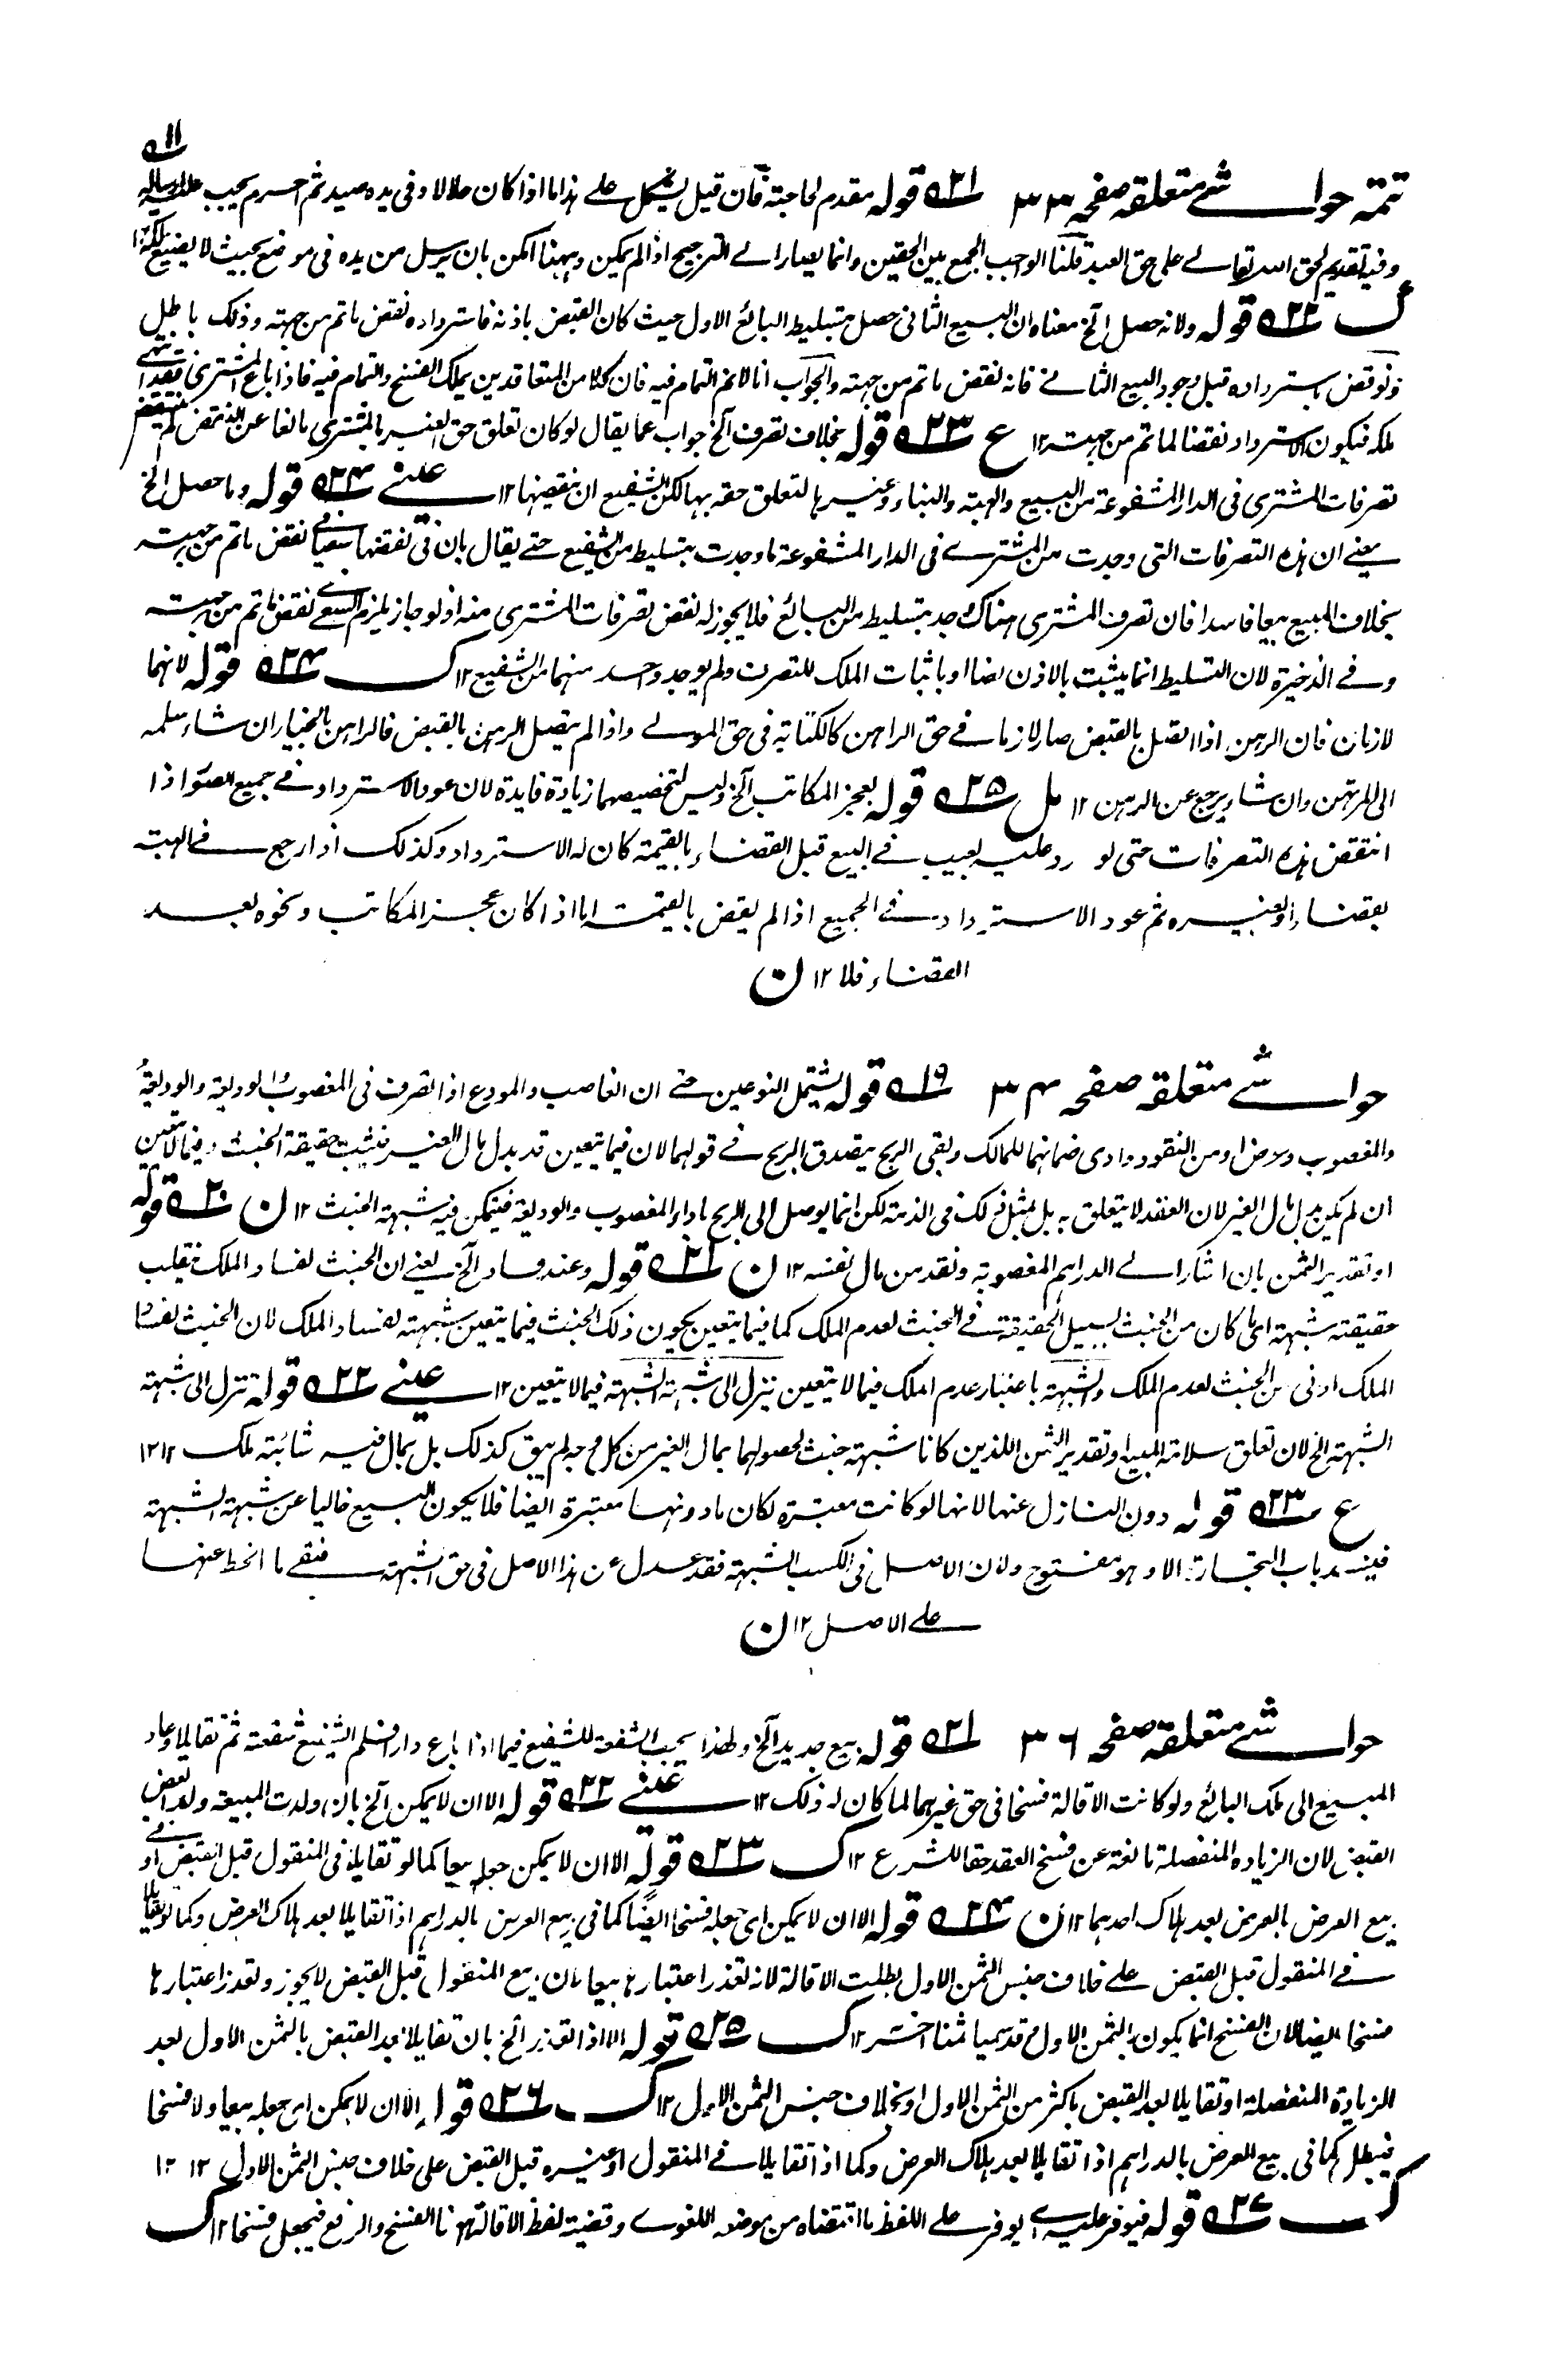 ١١
تتمة حواشے متعلقه صفحه ٣٣ ٢١ قوله مقدم لحاجته فان قيل يشكل علے هذا ما اذا كان حلالا وفى يده صيد ثم احرم يجب عليه ارساله
وفيه تقديم لحق الله تعالے على حق العبد قلنا الواجب الجمع بين الحقين وانما يصار الے الترجيح اذا لم يمكن وههنا امكن بان يرسل من يده فى موضع بحيث لا يضيع ملكه ١٢
ك ٢٢ قوله ولانه حصل الخ معناه ان البيع الثانى حصل بتسليط البائع الاول حيث كان القبض باذنه فاسترداده نقض ماتم من جهته وذلك باطل
ونوقض باسترداده قبل وجود البيع الثانے فانه نقض ماتم من جهته والجواب انا لانم التمام فيه فان كلا من المتعاقدين يملك الفسخ والتمام فيه فاذا باع المشترى فقد انتهى
ملكه فيكون الاسترداد نقضا لما تم من جهته ١٢ ع ٢٣ قوله بخلاف تصرف الخ جواب عما يقال لو كان تعلق حق الغير بالمشترى مانعا عن النقض لم ينتقض
تصرفات المشترى فى الدار المشفوعة من البيع والهبة والبناء وغيرها لتعلق حقه بها لكن الشفيع ان ينقضها ١٢ عينے ٢٤ قوله وما حصل الخ
يعنے ان هذه التصرفات التى وجدت من المشترے فى الدار المشفوعة ما وجدت بتسليط من الشفيع حتے يقال بان فى نقضها سعيا فے نقض ماتم من جهته
بخلاف المبيع بيعا فاسدا فان تصرف المشترى هناك وجد بتسليط من البائع فلا يجوز له نقض تصرفات المشترى منه اذ لو جاز يلزم السعے فے نقض ماتم من جهته
وفے الذخيرة لان التسليط انما يثبت بالاذن نصا او باثبات الملك للتصرف ولم يوجد واحد منهما من الشفيع ١٢ ك ٢٤ قوله لانهما
لازمان فان الرهن اذا اتصل بالقبض صار لازما فے حق الراهن كالكتابة فى حق المولے واذا لم يتصل الرهن بالقبض فالراهن بالخيار ان شاء سلمه
الى المرتهن وان شاء يرجع عن الرهن ١٢ مل ٢٥ قوله بعجز المكاتب الخ وليس لتخصيصهما زيادة فايدة لان عود الاسترداد فے جميع الصور اذا
انتقض هذه التصرفات حتى لو رد عليه بعيب فے البيع قبل القضاء بالقيمة كان له الاسترداد وكذلك اذا رجع فے الهبة
بقضاء او بغيره ثم عود الاسترداد فے الجميع اذا لم يقض بالقيمة اما اذا كان عجز المكاتب ونحوه بعد
القضاء فلا ١٢ ن
حواشے متعلقه صفحه ٣٤ ١٩ قوله يشتمل النوعين حتے ان الغاصب والمودع اذا تصرف فى المغصوب والوديعة
والمغصوب وعرض او من النقود وادى ضمانهما للمالك وبقى الربح يتصدق الربح فے قولهما لان فيما يتعين قد بدل مال الغير فيثبت حقيقة الخبث وفيما لا يتعين
ان لم يكن بدل مال الغير لان العقد لا يتعلق به بل بمثل ذلك فى الذمة لكن انما يوصل الى الربح باداء المغصوب والوديعة فيتمكن فيه شبهة الخبث ١٢ ن ٢٠ قوله
او تقدير الثمن بان اشار الے الدراهم المغصوبة ونقد من مال نفسه ١٢ ن ٢١ قوله وعند فساد الخ يعنے ان الخبث لفساد الملك ينقلب
حقيقته شبهة اى ما كان من الخبث بسبيل الحقيقة فے الخبث لعدم الملك كما فيما يتعين يكون ذلك الخبث فيما يتعين شبهة لفساد الملك لان الخبث لفساد
الملك ادنى من الخبث لعدم الملك والشبهة باعتبار عدم الملك فيما لا يتعين ينزل الى شبهة الشبهة فيما لا يتعين ١٢ عينے ٢٢ قوله تنزل الى شبهة
الشبهة الخ لان تعلق سلامة المبيع او تقدير الثمن اللذين كانا شبهة خبث لحصولهما بمال الغير من كل وجه لم يبق كذلك بل بمال فيه شائبة ملك ١٢ ١٢
ع ٢٣ قوله دون النازل عنها لانها لو كانت معتبرة لكان ما دونها معتبرة ايضا فلا يكون البيع خاليا عن شبهة الشبهة
فينسد باب التجارة الا وهو مفتوح ولان الاصل فى الكسب الشبهة فقد عدل عن هذا الاصل فى حق الشبهة فبقے ما انحط عنها
علے الاصل ١٢ ن
حواشے متعلقه صفحه ٣٦ ٢١ قوله بيع جديد الخ ولهذا يجب الشفعة للشفيع فيما اذا باع دارا فسلم الشفيع شفعته ثم تقايلا وعاد
المبيع الى ملك البائع ولو كانت الاقالة فسخا فى حق غيرهما لما كان له ذلك ١٢ عينے ٢٢ قوله الا ان لا يمكن الخ بان ولدت المبيعة ولدا بعد
القبض لان الزيادة المنفصلة مانعة عن فسخ العقد حقا للشرع ١٢ ك ٢٣ قوله الا ان لا يمكن جعله بيعا كما لو تقايلا فى المنقول قبل القبض او فے
بيع العرض بالعرض بعد هلاك احدهما ١٢ ن ٢٤ قوله الا ان لا يمكن اى جعله فسخا ايضًا كما فى بيع العرض بالدراهم اذا تقايلا بعد هلاك العرض وكما لو تقايلا
فے المنقول قبل القبض علے خلاف جنس الثمن الاول بطلت الاقالة لانه تعذر اعتبارها بيعا لان بيع المنقول قبل القبض لا يجوز وتعذر اعتبارها
فسخا ايضا لان الفسخ انما يكون بالثمن الاول وقد سميا ثمنا اخر ١٢ ك ٢٥ قوله الا اذا تعذر الخ بان تقايلا بعد القبض بالثمن الاول بعد
الزيادة المنفصلة او تقايلا بعد القبض باكثر من الثمن الاول او بخلاف جنس الثمن الاول ١٢ ك ٢٦ قوله الا ان لا يمكن اى جعله بيعا ولا فسخا
فيبطل كما فى بيع العرض بالدراهم اذا تقايلا بعد هلاك العرض وكما اذا تقايلا فے المنقول او غيره قبل القبض على خلاف جنس الثمن الاول ١٢ ١٢
ك ٢٧ قوله فيوفر عليه اى يوفر علے اللفظ ما اقتضاه من موضعه اللغوے وقضية لفظ الاقالة هذا الفسخ والرفع فيجعل فسخا ١٢ ك